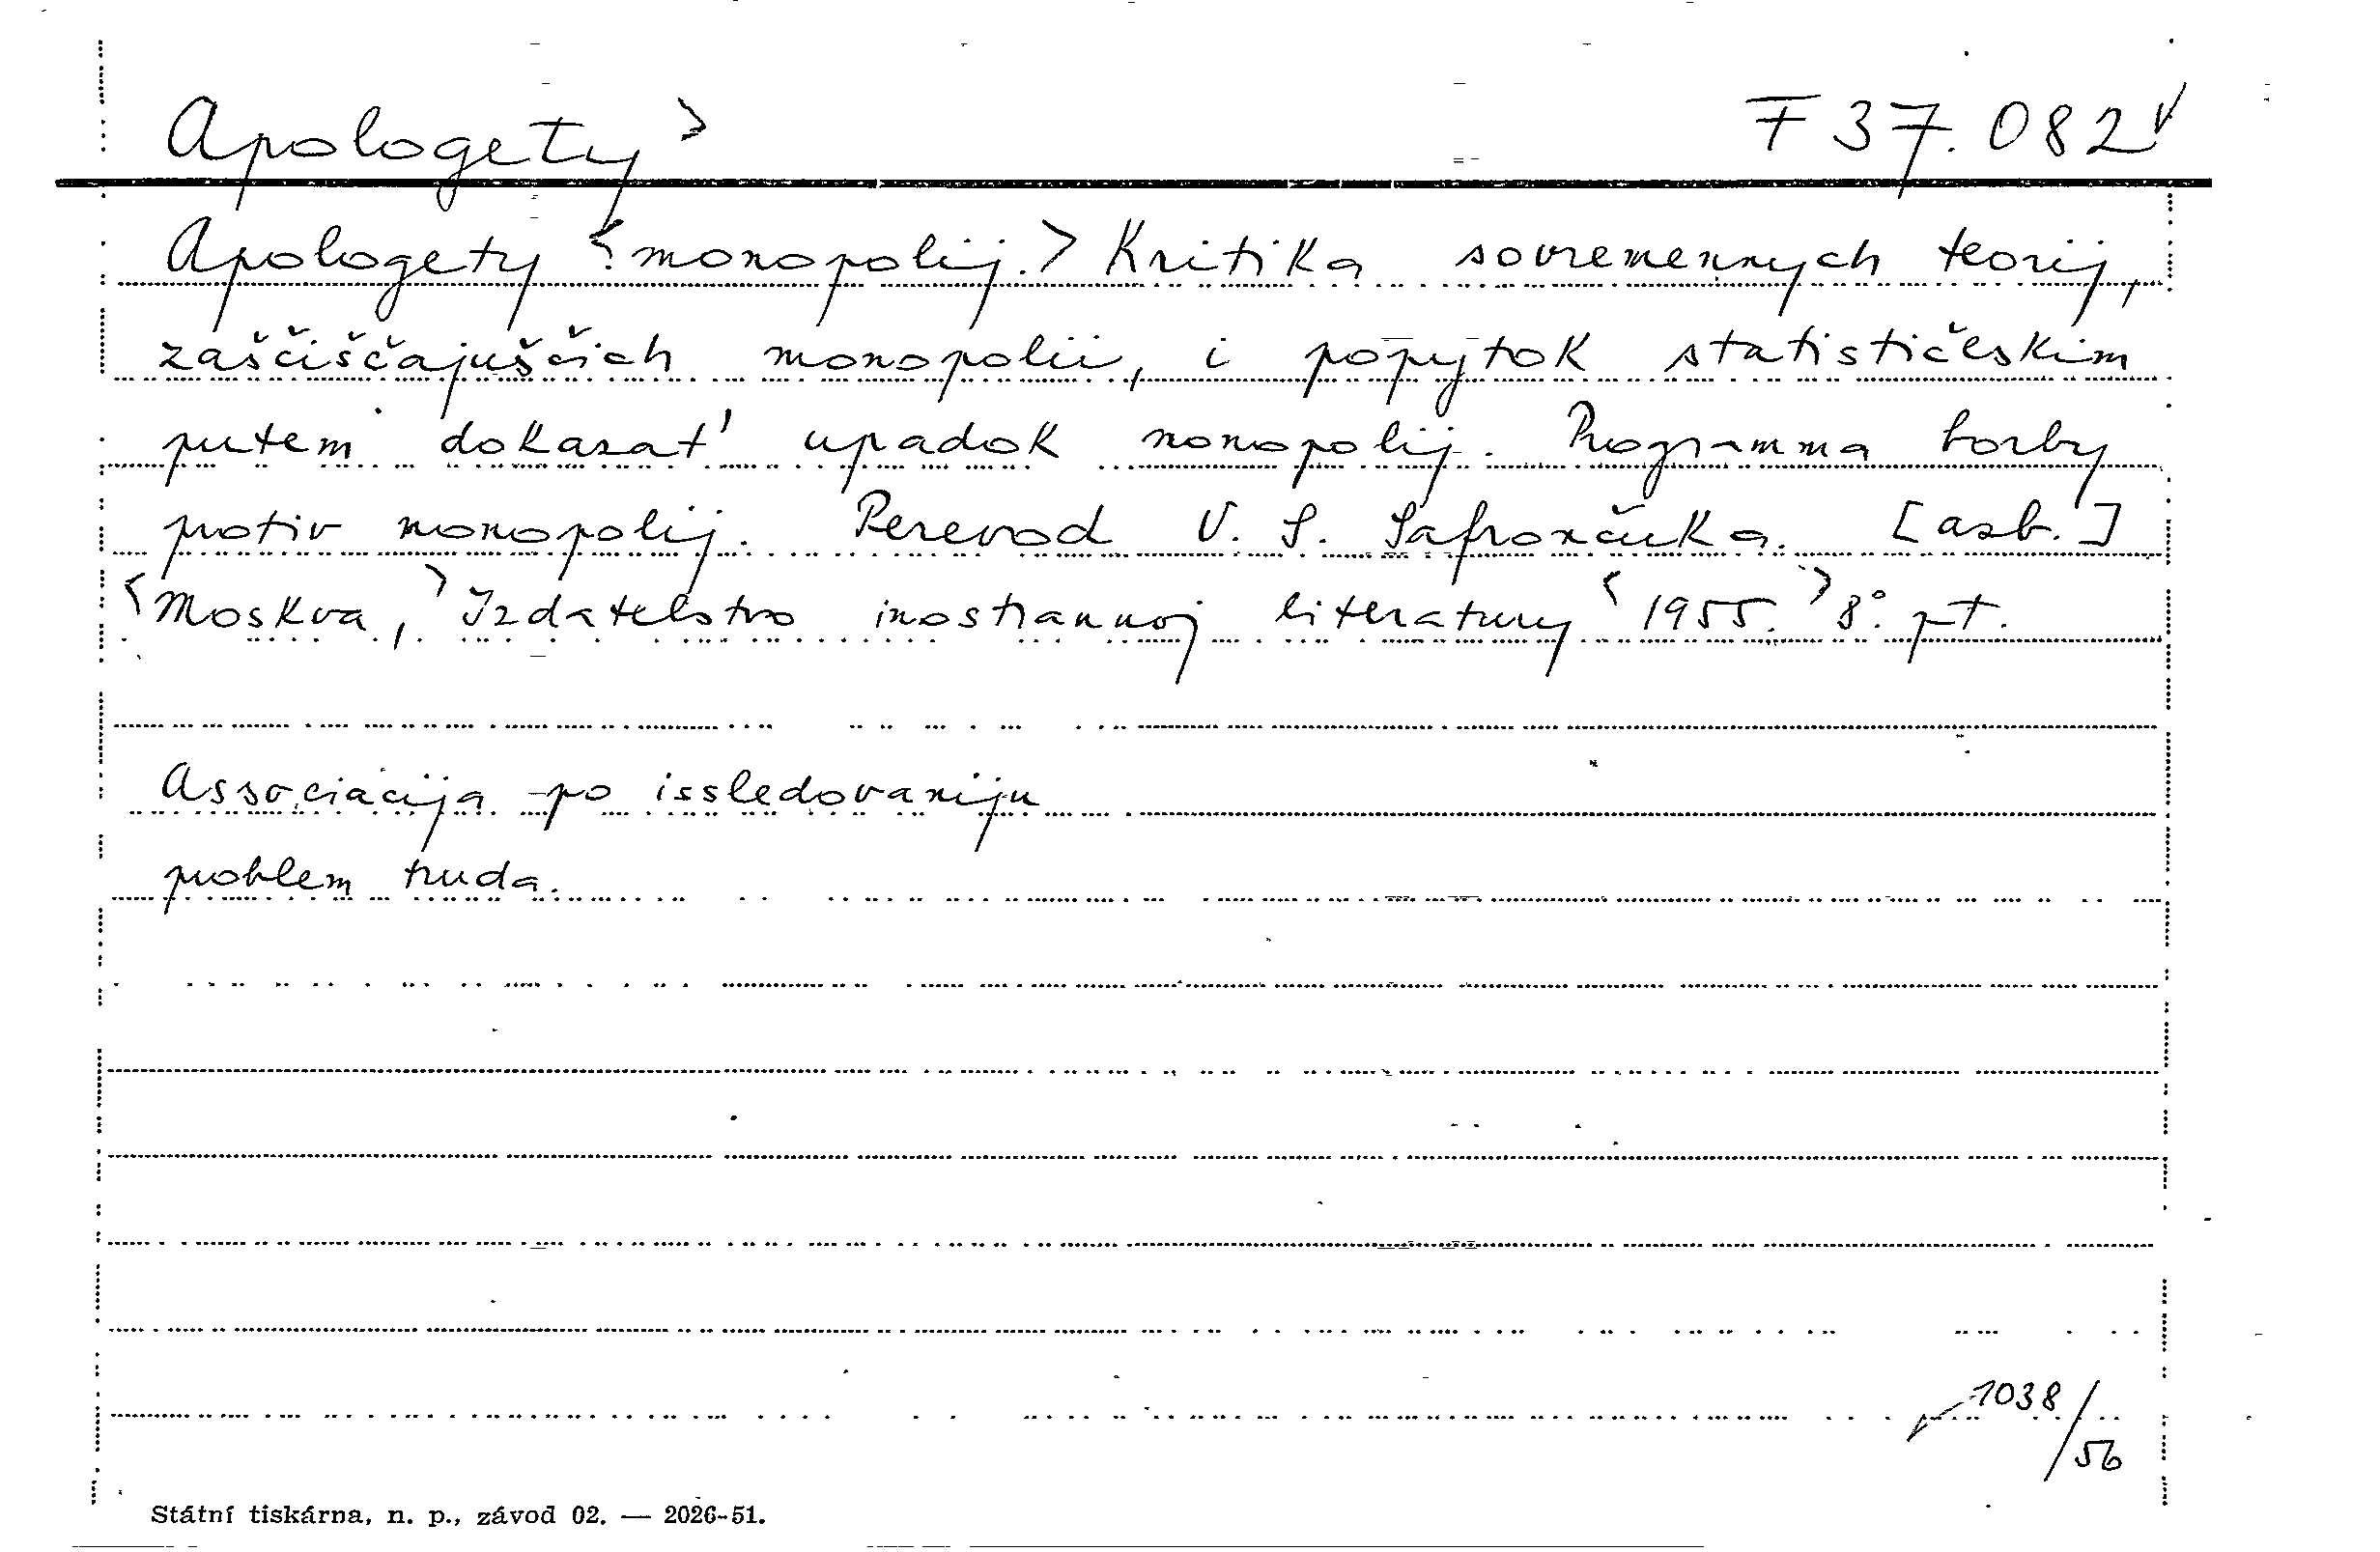 Apologety > F 37.082
Apologety <monopolij.> Kritika sovremennych teorij,
zaščiščajuščich monopolii, i popytok statističeskim
putem dokazat' upadok monopolij. Programma borby
protiv monopolij. Perevod V. S. Safrončuka. [azb.]
<Moskva,> Izdatelstvo inostrannoj literatury <1955.> 8°. pt.
Associacija po issledovaniju
problem truda.
1038/56
Státní tiskárna, n. p., závod 02. — 2026-51.